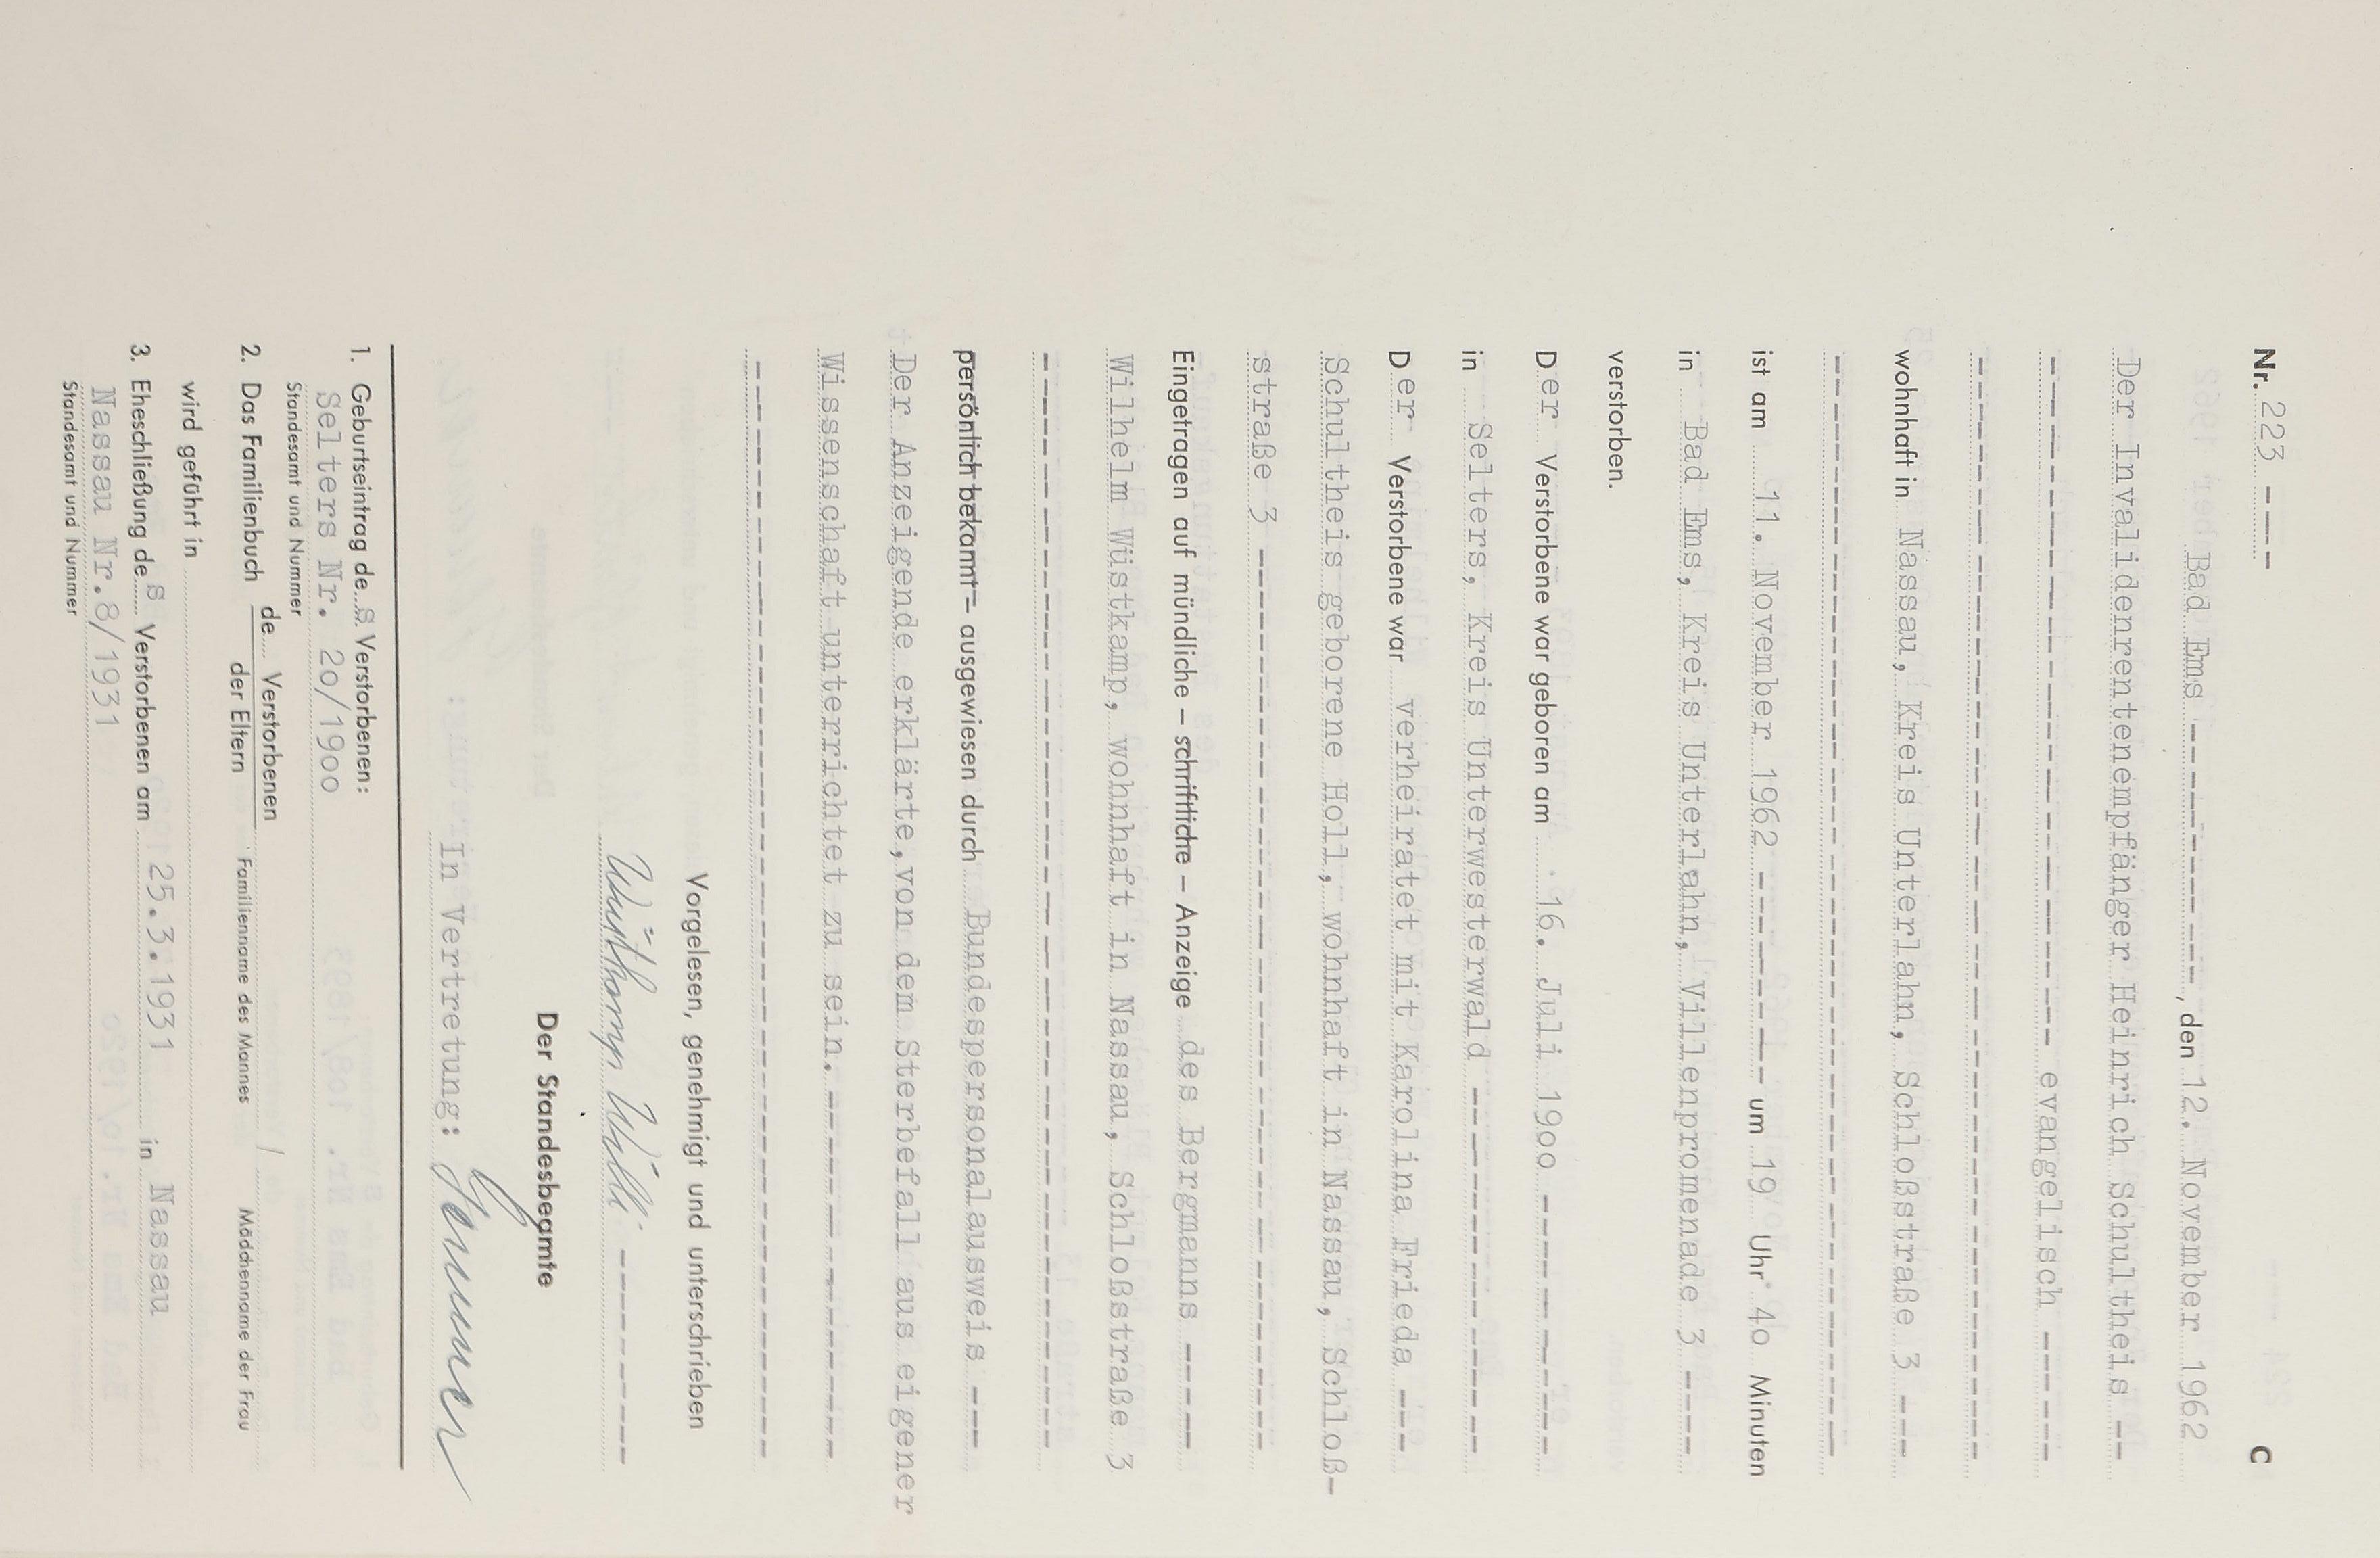 Nr. 223 ---- C
Bad Ems ----------------, den 12. November 1962
Der Invalidenrentenempfänger Heinrich Schultheis --
---------------------------- evangelisch -------
------------------------------------------------
wohnhaft in Nassau, Kreis Unterlahn, Schloßstraße 3 ---
------------------------------------------------
ist am 11. November 1962 ------------ um 19 Uhr 4o Minuten
in Bad Ems, Kreis Unterlahn, Villenpromenade 3 ----
verstorben.
Der Verstorbene war geboren am 16. Juli 19oo -------------
in Selters, Kreis Unterwesterwald -----------------
Der Verstorbene war verheiratet mit Karolina Frieda ---
Schultheis geborene Holl, wohnhaft in Nassau, Schloß-
straße 3 ----------------------------------------
Eingetragen auf mündliche – schriftliche – Anzeige des Bergmanns -----
Wilhelm Wüstkamp, wohnhaft in Nassau, Schloßstraße 3
------------------------------------------------
persönlich bekannt – ausgewiesen durch Bundespersonalausweis ---
Der Anzeigende erklärte, von dem Sterbefall aus eigener
Wissenschaft unterrichtet zu sein. -----------------
------------------------------------------------
Vorgelesen, genehmigt und unterschrieben
Wüstkamp Willi ----------
Der Standesbeamte
In Vertretung:
1. Geburtseintrag des Verstorbenen:
Selters Nr. 2o/19oo
Standesamt und Nummer
2. Das Familienbuch de Verstorbenen / der Eltern /
Familienname des Mannes Mädchenname der Frau
wird geführt in
3. Eheschließung des Verstorbenen am 25.3.1931 in Nassau
Nassau Nr.8/1931
Standesamt und Nummer